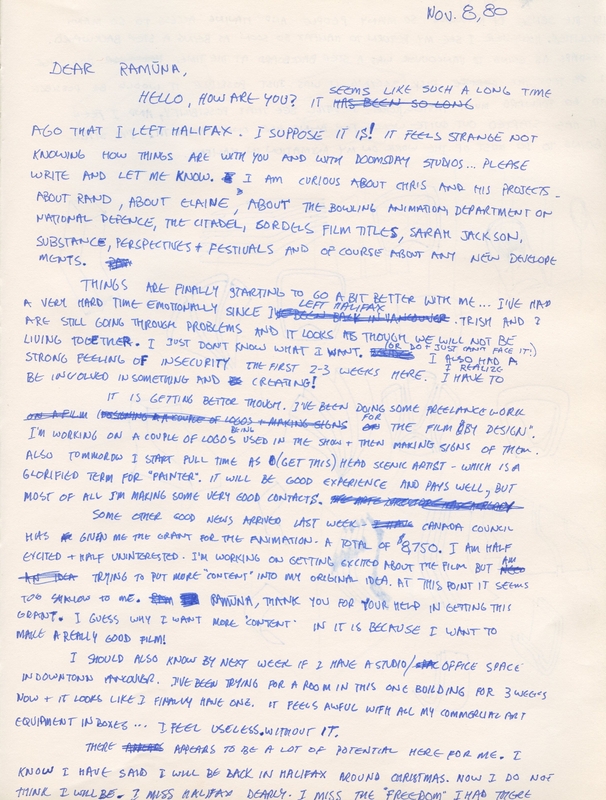 NOV. 8, 80
DEAR RAMŪNA,
HELLO, HOW ARE YOU? IT HAS BEEN SO LONG SEEMS LIKE SUCH A LONG TIME
AGO THAT I LEFT HALIFAX. I SUPPOSE IT IS! IT FEELS STRANGE NOT
KNOWING HOW THINGS ARE WITH YOU AND WITH DOOMSDAY STUDIOS... PLEASE
WRITE AND LET ME KNOW. I AM CURIOUS ABOUT CHRIS AND HIS PROJECTS -
ABOUT RAND, ABOUT ELAINE, ABOUT THE BOWLING ANIMATION, DEPARTMENT ON
NATIONAL DEFENCE, THE CITADEL, BORDELS FILM TITLES, SARAH JACKSON,
SUBSTANCE, PERSPECTIVES + FESTIVALS AND OF COURSE ABOUT ANY NEW DEVELOPE
MENTS.
THINGS ARE FINALLY STARTING TO GO A BIT BETTER WITH ME... I'VE HAD
A VERY HARD TIME EMOTIONALLY SINCE I'VE BEEN BACK IN VANCOUVER LEFT HALIFAX. TRISH AND I
ARE STILL GOING THROUGH PROBLEMS AND IT LOOKS AS THOUGH WE WILL NOT BE
LIVING TOGETHER. I JUST DON'T KNOW WHAT I WANT. (OR DO + JUST CAN'T FACE IT!) I ALSO HAD A
STRONG FEELING OF INSECURITY THE FIRST 2-3 WEEKS HERE. I REALIZE I HAVE TO
BE INVOLVED IN SOMETHING AND CREATING!
IT IS GETTING BETTER THOUGH. I'VE BEEN DOING SOME FREELANCE WORK
ON A FILM (DESIGNING A COUPLE OF LOGOS + MAKING SIGNS FOR THE FILM "BY DESIGN".
I'M WORKING ON A COUPLE OF LOGOS BEING USED IN THE SHOW + THEN MAKING SIGNS OF THEM.
ALSO TOMMOROW I START FULL TIME AS (GET THIS) HEAD SCENIC ARTIST - WHICH IS A
GLORIFIED TERM FOR "PAINTER". IT WILL BE GOOD EXPERIENCE AND PAYS WELL, BUT
MOST OF ALL I'M MAKING SOME VERY GOOD CONTACTS.
SOME OTHER GOOD NEWS ARRIVED LAST WEEK. CANADA COUNCIL
HAS GIVEN ME THE GRANT FOR THE ANIMATION - A TOTAL OF $8,750. I AM HALF
EXCITED + HALF UNINTERESTED. I'M WORKING ON GETTING EXCITED ABOUT THE FILM BUT AM
AN IDEA TRYING TO PUT MORE "CONTENT" INTO MY ORIGINAL IDEA. AT THIS POINT IT SEEMS
TOO SHALLOW TO ME. RAMŪNA, THANK YOU FOR YOUR HELP IN GETTING THIS
GRANT. I GUESS WHY I WANT MORE "CONTENT" IN IT IS BECAUSE I WANT TO
MAKE A REALLY GOOD FILM!
I SHOULD ALSO KNOW BY NEXT WEEK IF I HAVE A STUDIO/OFFICE SPACE
IN DOWNTOWN VANCOUVER. I'VE BEEN TRYING FOR A ROOM IN THIS ONE BUILDING FOR 3 WEEKS
NOW + IT LOOKS LIKE I FINALLY HAVE ONE. IT FEELS AWFUL WITH ALL MY COMMERCIAL ART
EQUIPMENT IN BOXES... I FEEL USELESS WITHOUT IT.
THERE APPEARS TO BE A LOT OF POTENTIAL HERE FOR ME. I
KNOW I HAVE SAID I WILL BE BACK IN HALIFAX AROUND CHRISTMAS. NOW I DO NOT
THINK I WILL BE. I MISS HALIFAX DEARLY. I MISS THE "FREEDOM" I HAD THERE